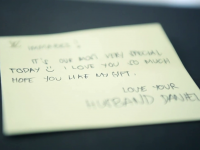 IT'S OUR VERY SPECIAL
TODAY I LOVE YOU SO MUCH
HOPE YOU LIKE MY GIFT.
LOVE YOUR
HUSBAND DANIEL